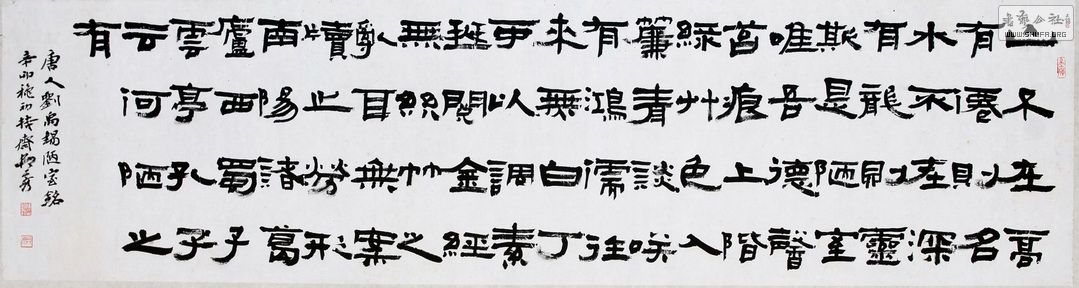 山不在高
有僊則名
水不在深
有龍則靈
斯是陋室
唯吾德馨
苔痕上階
綠艸色入
簾青談咲
有鴻儒往
來無白丁
可以調素
琴閱金經
無絲竹之
亂耳無案
牘之勞形
南陽諸葛
廬西蜀子
雲亭孔子
云何陋之
有
唐人劉禹錫陋室銘
辛卯秋初
書藝公社
WWW.SHUFA.ORG